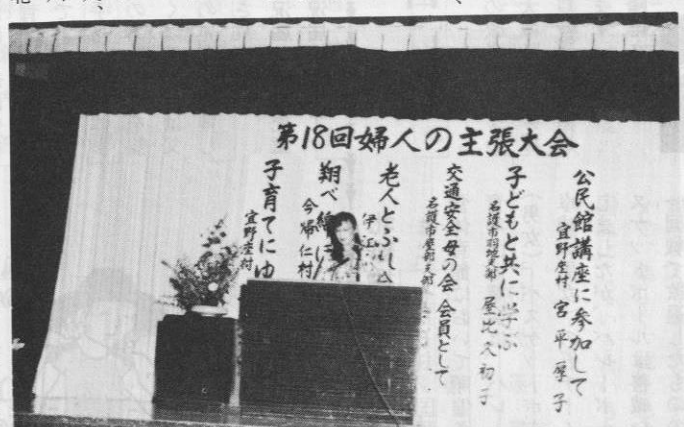 第18回婦人の主張大会
公民館講座に参加して
宜野座村 宮平厚子
子どもと共に学ぶ
名護市羽地支部 屋比久初子
交通安全母の会 会員として
名護市屋部支部
老人とふれ
伊江
翔べ
今帰仁村
子育てにゆ
宜野座村